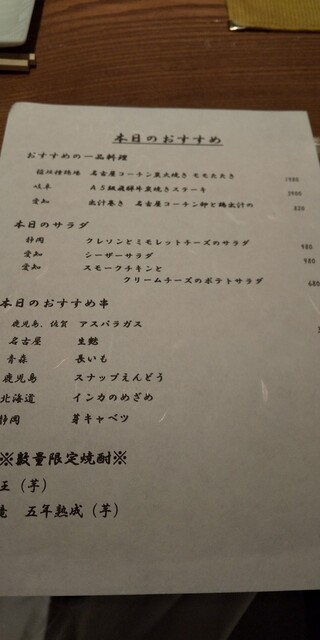 本日のおすすめ
おすすめの一品料理
名古屋コーチン炭火焼き モモたたき 1980
岐阜 A5級飛騨牛炭焼きステーキ 2980
愛知 出汁巻き 名古屋コーチン卵と鶏出汁の 820
本日のサラダ
静岡 クレソンとミモレットチーズのサラダ 980
愛知 シーザーサラダ 980
愛知 スモークチキンと
クリームチーズのポテトサラダ 680
本日のおすすめ串
鹿児島、佐賀 アスパラガス
名古屋 生麩
青森 長いも
鹿児島 スナップえんどう
北海道 インカのめざめ
静岡 芽キャベツ
※数量限定焼酎※
王（芋）
五年熟成（芋）